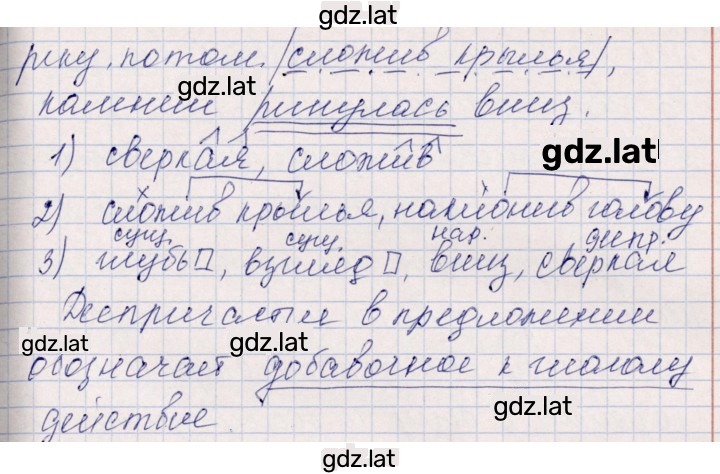 gdz.lat
реку, потом, сложив крылья,
gdz.lat
камнем ринулась вниз.
1) сверкая, сложив
gdz.lat
2) сложив крылья, наклонив голову
сущ. сущ. нар. деепр.
3) глубь, взгляд, вниз, сверкая
Деепричастие в предложении
gdz.lat gdz.lat
обозначает добавочное к глаголу
gdz.lat
действие.
gdz.lat